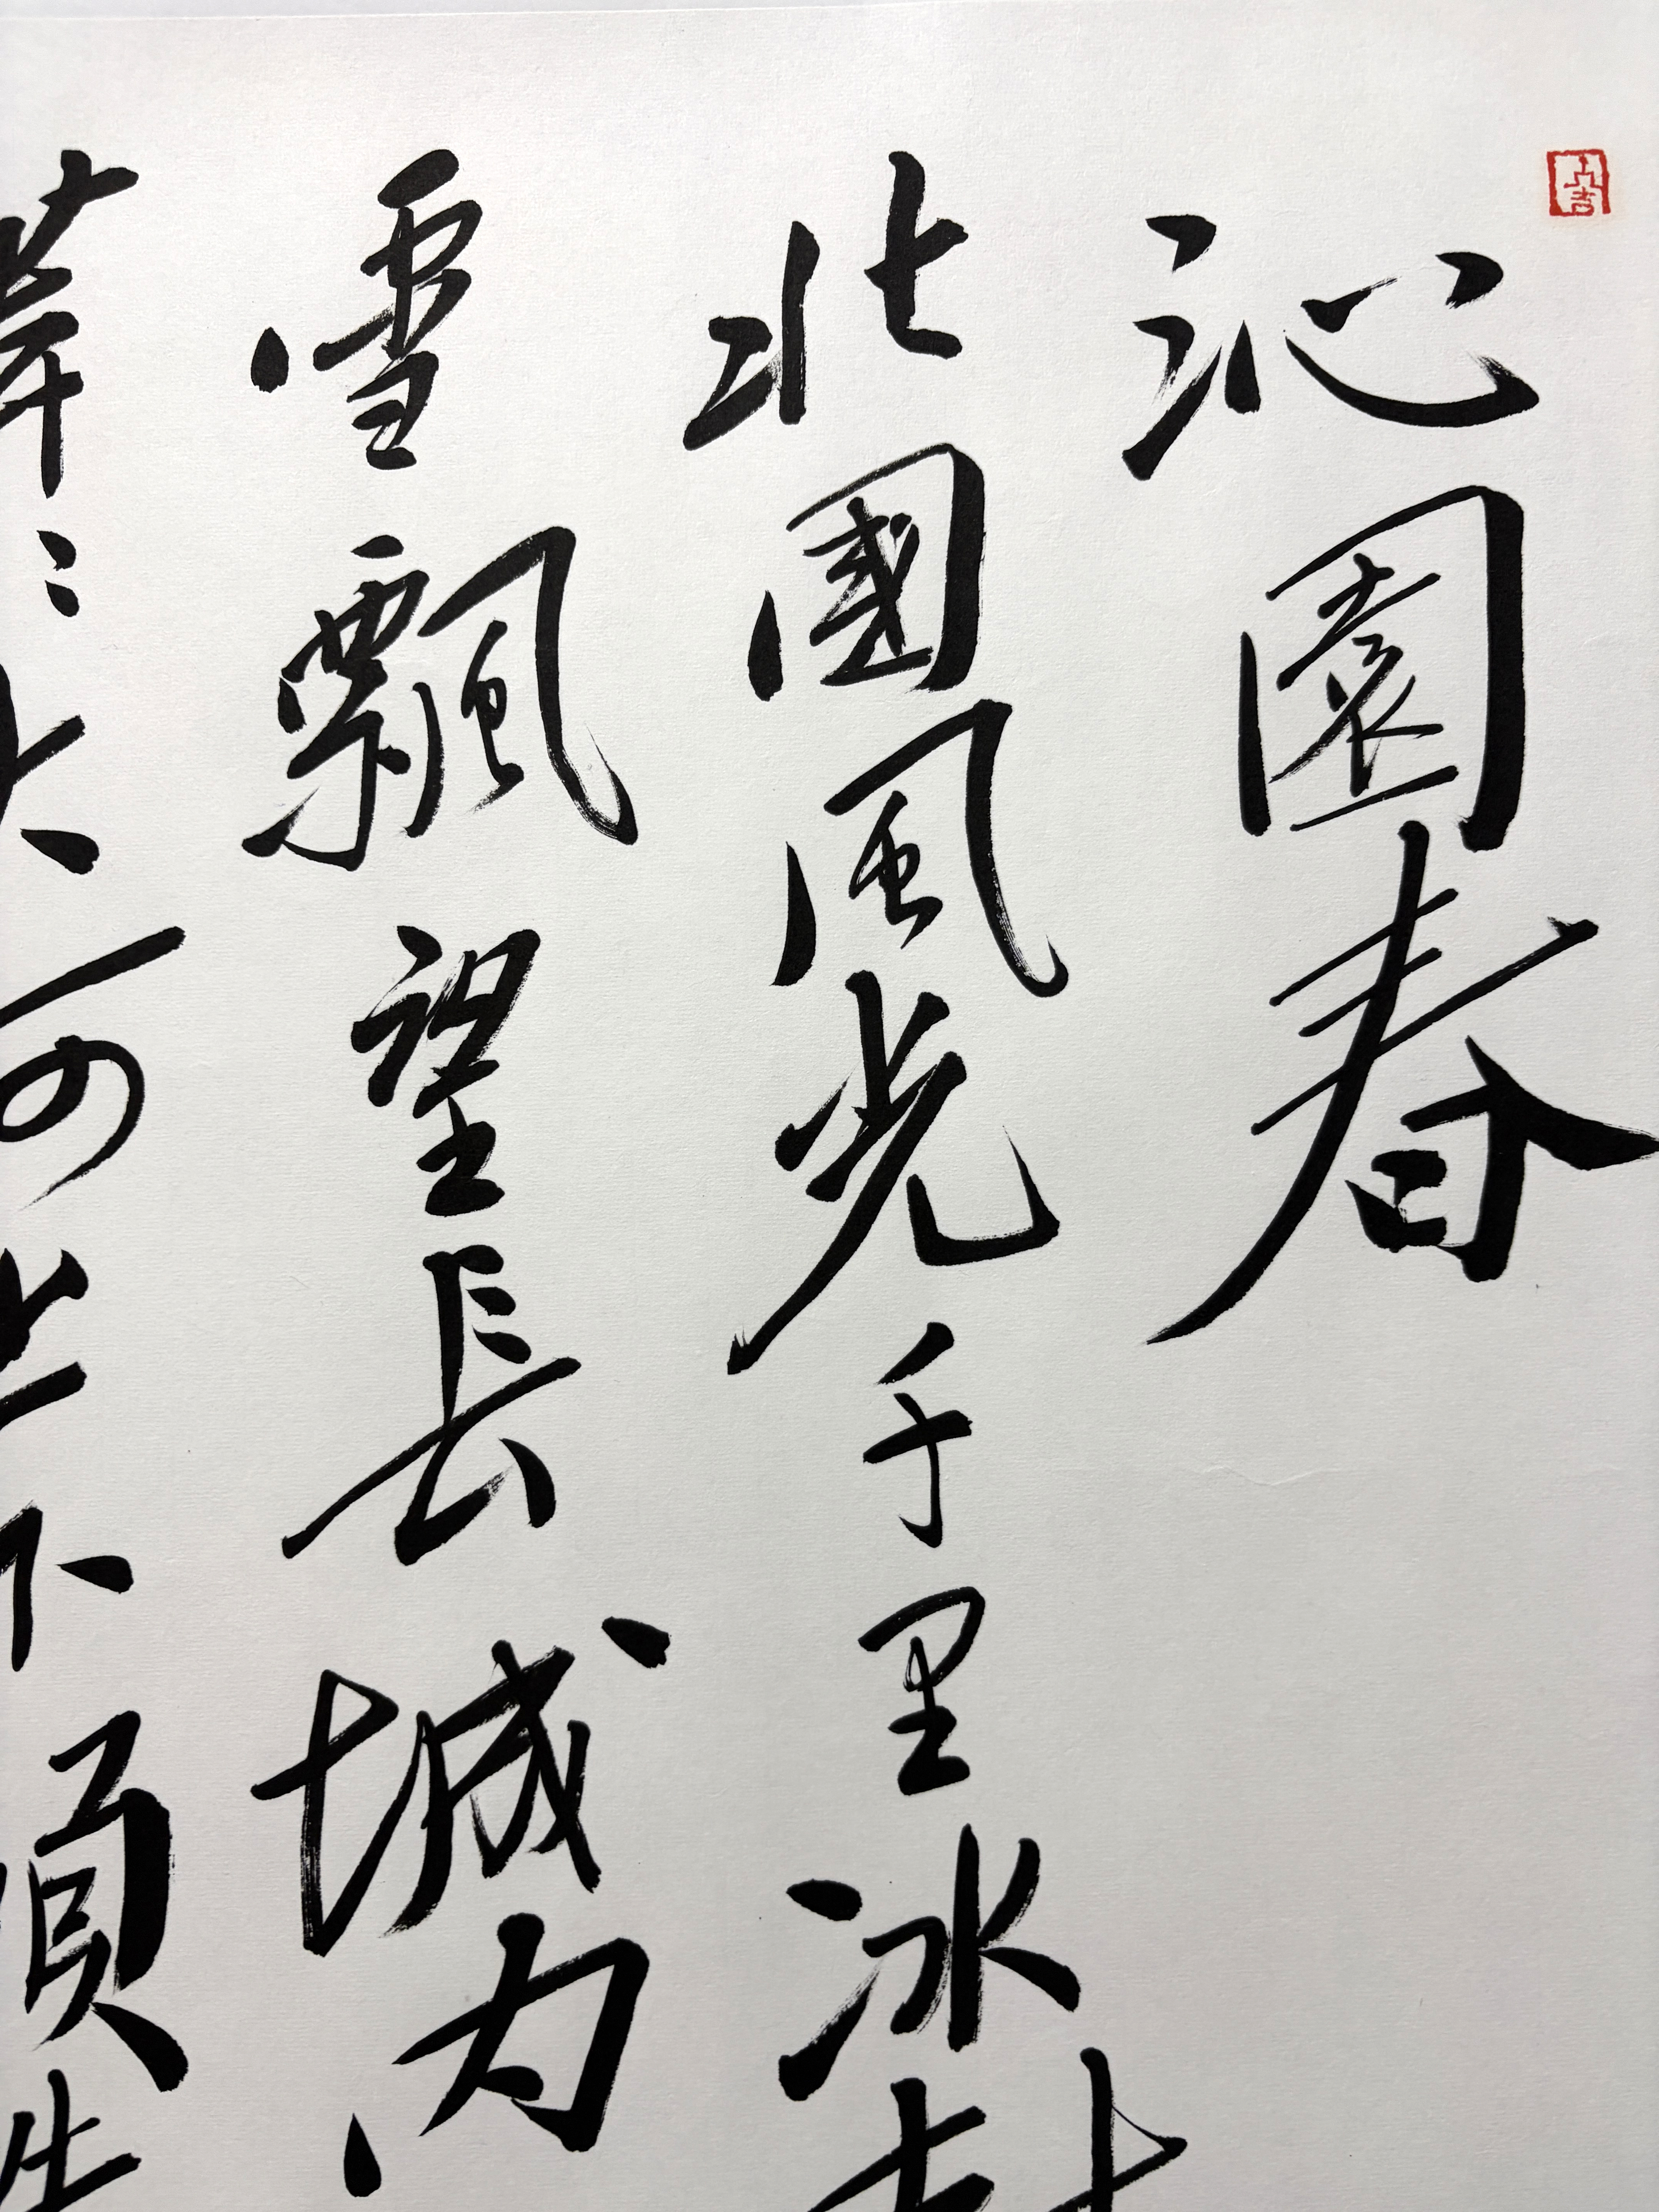 沁園春
北國風光千里冰封
雪飄望長城内
莽〻大河上下頓失